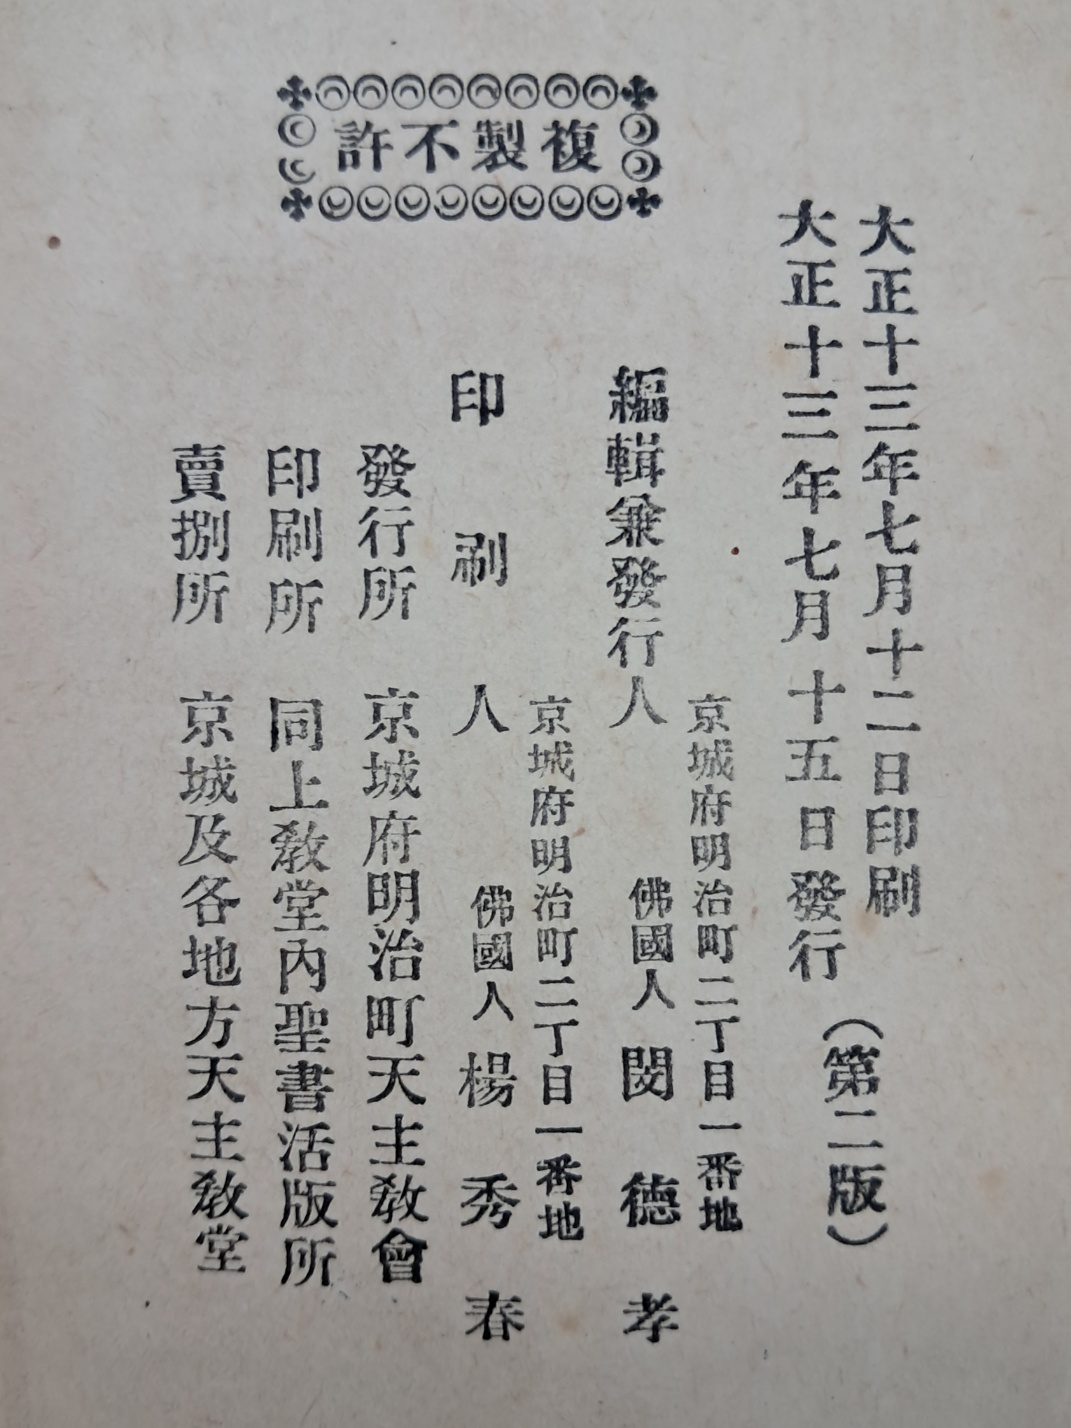 複製不許
大正十三年七月十二日印刷
大正十三年七月十五日發行 (第二版)
京城府明治町二丁目一番地
編輯兼發行人 佛國人 閔德孝
京城府明治町二丁目一番地
印刷人 佛國人 楊秀春
發行所 京城府明治町天主敎會
印刷所 同上敎堂內聖書活版所
賣捌所 京城及各地方天主敎堂